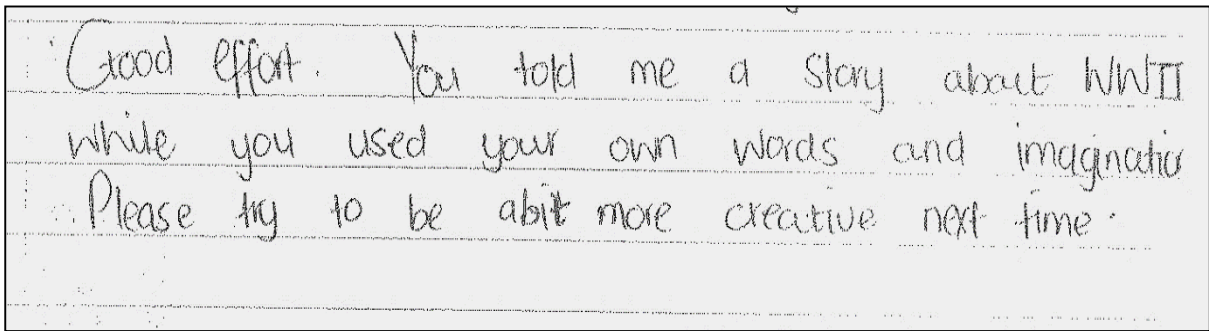 Good effort. You told me a story about WWII
while you used your own words and imaginatio
Please try to be abit more creative next time.